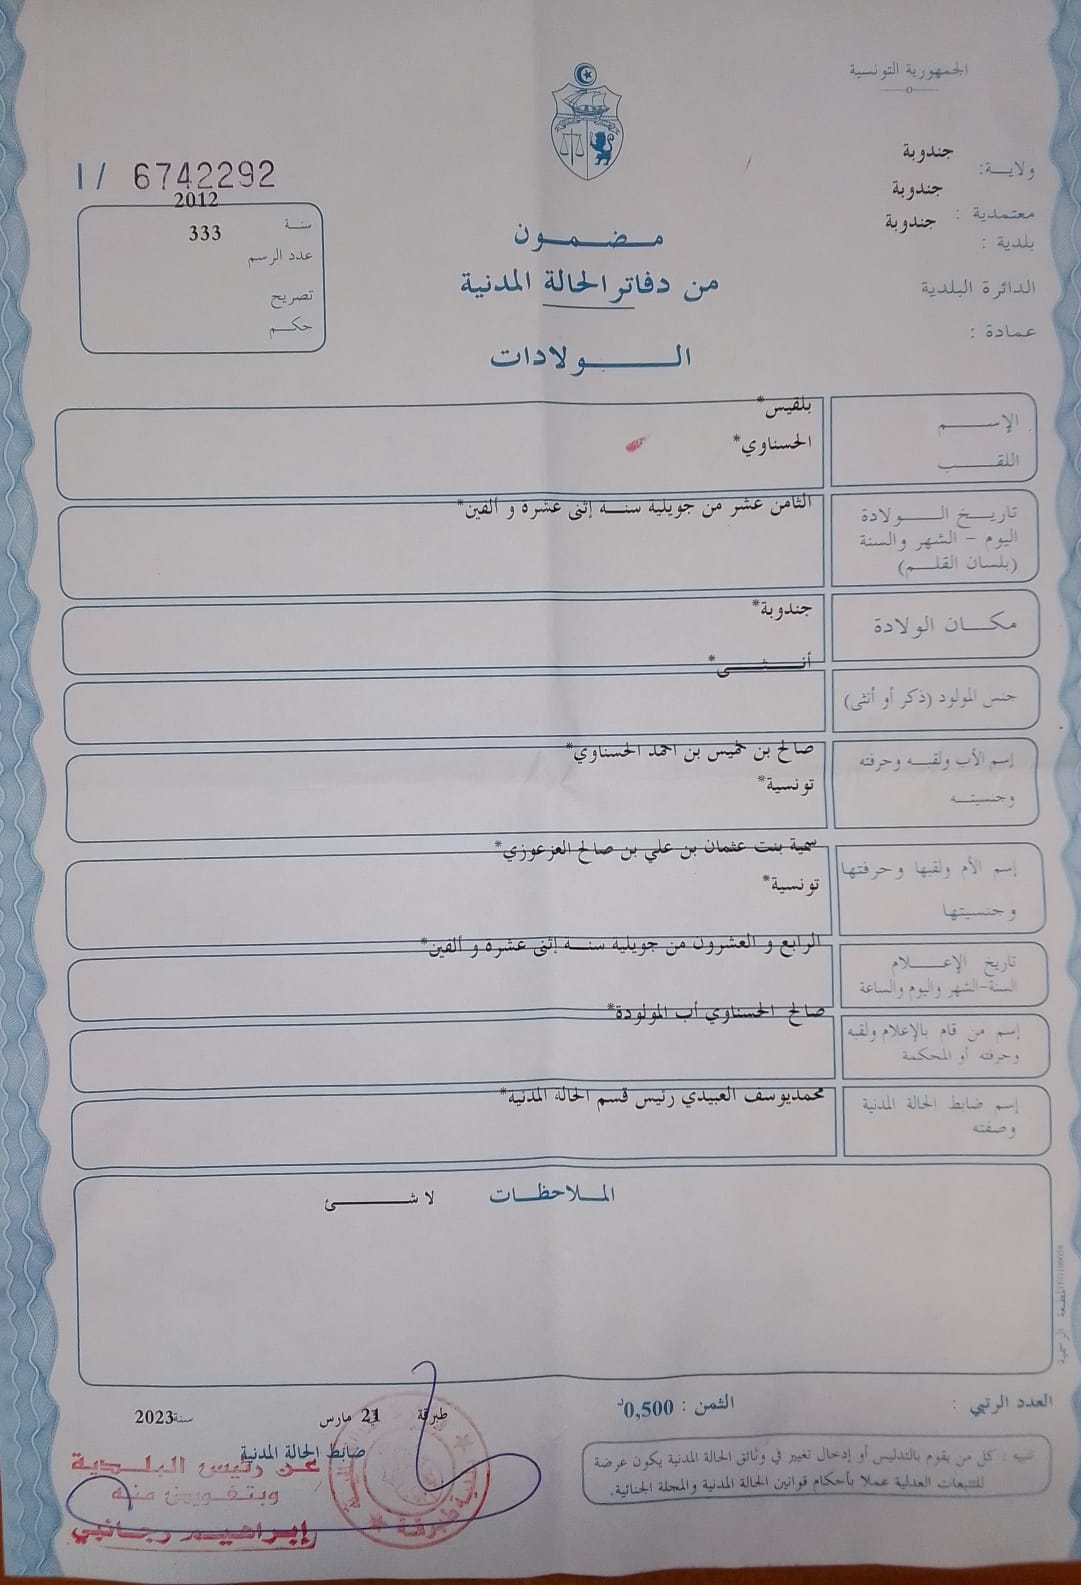 الجمهورية التونسية
ولاية: جندوبة
معتمدية : جندوبة
بلدية : جندوبة
الدائرة البلدية
عمادة :
I/ 6742292
سنة 2012
عدد الرسم 333
تصريح
حكم
مضمون
من دفاتر الحالة المدنية
الولادات
الإسم بلقيس*
اللقب الحسناوي*
تاريخ الولادة الثامن عشر من جويلية سنة إثنى عشرة و ألفين*
اليوم - الشهر والسنة
(بلسان القلم)
مكان الولادة جندوبة*
جنس المولود (ذكر أو أنثى) أنثى*
إسم الأب ولقبه وحرفته صالح بن خميس بن احمد الحسناوي*
وجنسيته تونسية*
إسم الأم ولقبها وحرفتها سمية بنت عثمان بن علي بن صالح العزعوزي*
وجنسيتها تونسية*
تاريخ الإعلام الرابع و العشرون من جويلية سنة إثنى عشرة و ألفين*
السنة-الشهر واليوم والساعة
إسم من قام بالإعلام ولقبه صالح الحسناوي أب المولودة*
وحرفته أو المحكمة
إسم ضابط الحالة المدنية محمديوسف العبيدي رئيس قسم الحالة المدنية*
وصفته
الملاحظات
لا شئ
المطبعة الرسمية
العدد الرتبي :
الثمن : 0,500د
طبرقة في 21 مارس سنة 2023
ضابط الحالة المدنية
تنبيه : كل من يقوم بالتدليس أو إدخال تغيير في وثائق الحالة المدنية يكون عرضة
للتتبعات العدلية عملا بأحكام قوانين الحالة المدنية والمجلة الجنائية.
عن رئيس البلدية
وبتفويض منه
إبراهيم رجائبي
طبرقة